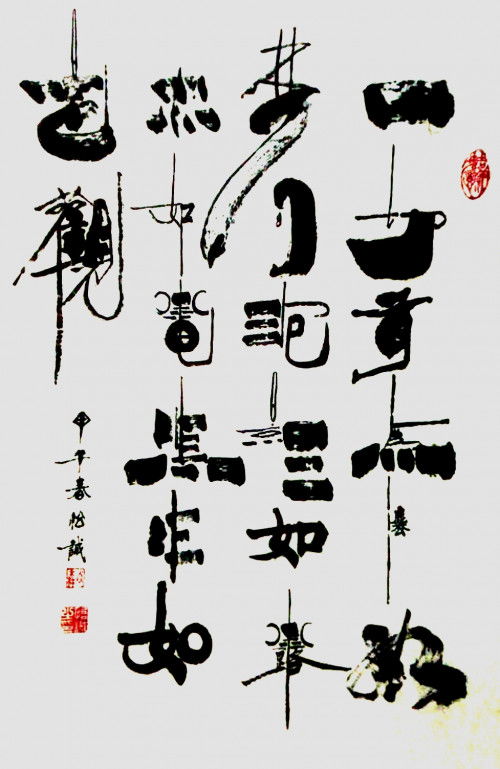 一切有為法如
夢幻泡影如露
亦如電應作如
是觀
甲午春